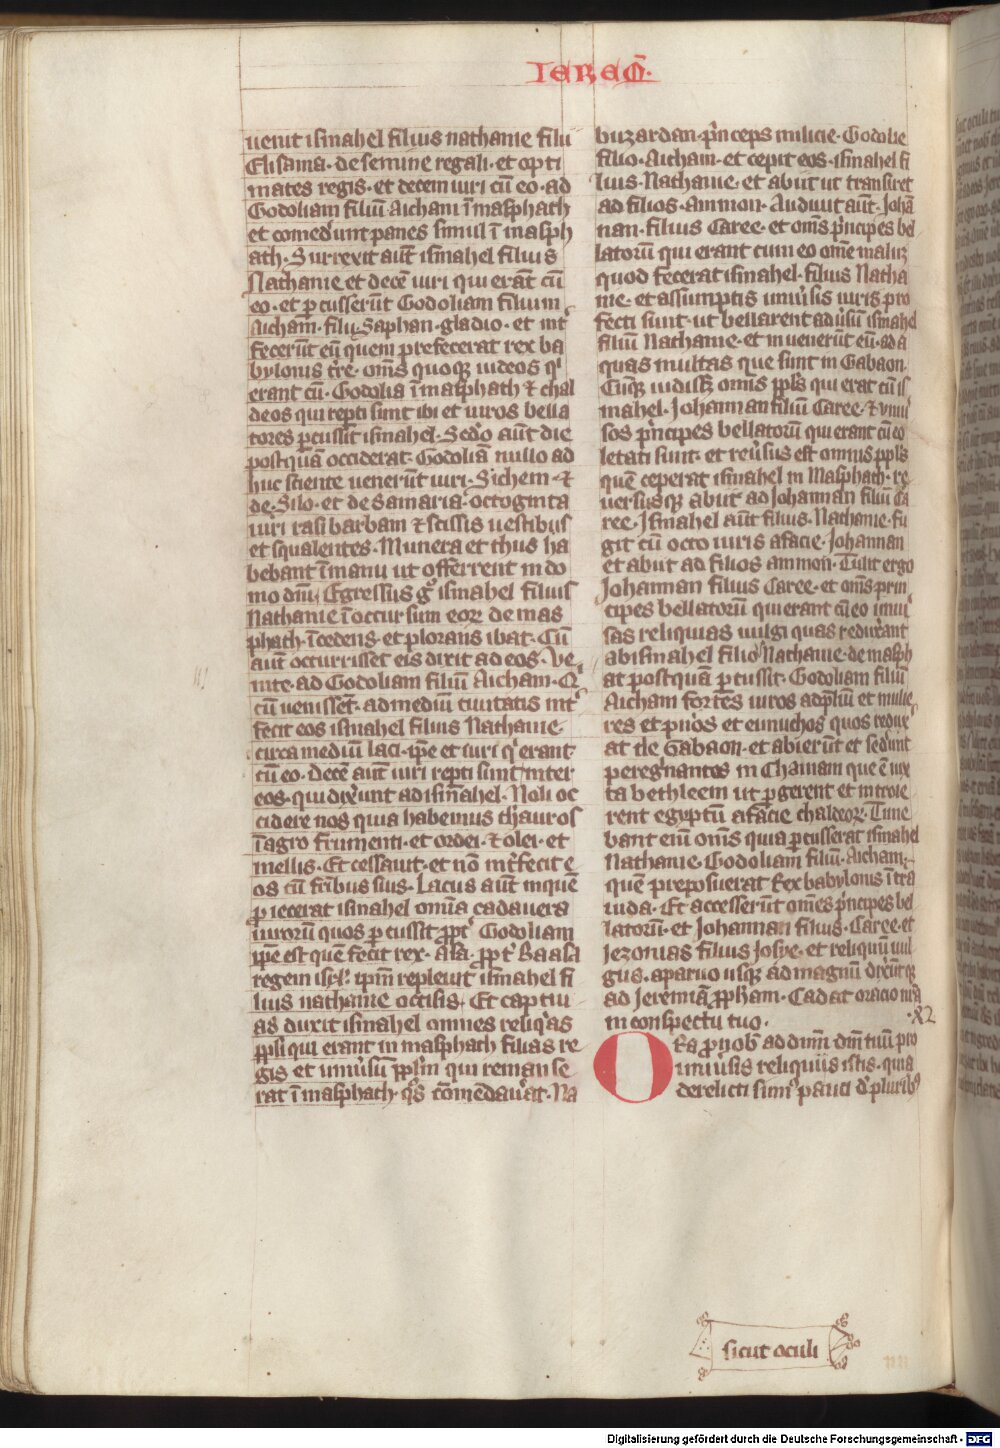 IEREM̄.
uenit ismahel filius nathanie filii
Elisama · de semine regali · et opti
mates regis · et decem uiri cū eo · ad
Godoliam filiū Aicham ī masphath
et comed'unt panes simul ī masph
ath · Surrexit aūt ismahel filius
Nathanie et decē uiri qui erāt cū
eo · et pcusserūt Godoliam filium
Aicham · filii Saphan · gladio · et int'
fecerūt eū quem prefecerat rex ba
bylonis tr̄e · om̄s quoqꝫ iudeos qⁱ
erant cū · Godolia ī masphath ⁊ chal
deos qui rep̄ti sunt ibi et uiros bella
tores pcussit ismahel · Sed'o aūt die
postquā occiderat · Godoliā nullo ad
huc sciente uenerūt uiri · Sichem · ⁊
de · Silo · et de Samaria · octoginta
uiri rasi barbam ⁊ scissis uestibus
et squalentes · Munera et thus ha
bebant ī manu ut offerrent in do
mo dn̄i · Egressus gͦ ismahel filius
Nathanie ī occursum eoꝝ de mas
phath · īcedens · et plorans ibat · Cū
aūt occurrisset eis dixit ad eos · Ve
nite · ad Godoliam filiū Aicham · Q'
cū uenissēt · ad mediū ciuitatis int'
fecit eos ismahel filius Nathanie ·
circa mediū laci · ip̄e et uiri qⁱ erant
cū eo · Decē aūt uiri rep̄ti sunt inter
eos · qui dix'unt ad ismahel · Noli oc
cidere nos quia habemus thauros
ī agro frumenti · et ordei · ⁊ olei · et
mellis · Et cessauit · et nō int'fecit e
os cū fr̄ibus suis · Lacus aūt in quē
piecerat ismahel omīa cadauera
uirorū quos pcussit ꝓpt' Godoliam
ip̄e est quē fecit rex · Asa · ꝓpt' Baasa
regem isrl̄ · ip̄m repleuit ismahel fi
lius nathanie occisis · Et captiu
as duxit ismahel omnes reliqⁱas
ppl̄i qui erant in masphath filias re
gis et uniu'sum ppl̄m qui remanse
rāt ī masphath · qͦs cōmēdau'at · Na
buzardan · pⁱnceps milicie · Godolie
filio · Aicham · et cepit eos · ismahel fi
lius · Nathanie · et abiit ut transiret
ad filios · Ammon · Audiuit aūt · Johā
nan · filius Caree · et om̄s pⁱncipes bel
latorū qui erant cum eo om̄e maluꝫ
quod fecerat ismahel · filius Natha
nie · et assumptis uniu'sis uiris pro
fecti sunt · ut bellarent adu'sū ismahel
filiū Nathanie · et inuenerūt eū · ad a
quas multas que sunt in Gabaon ·
Cūqꝫ uidissꝫ omīs ppl̄s qui erat cū is
mahel · Johannan filiū Caree · ⁊ uniu'
sos pⁱncipes bellatorū qui erant cū eo
letati sunt · et reu'sus est omnis ppl̄s
quē ceperat ismahel in Masphath · re
uersusqꝫ abiit ad Johannan filiū Ca
ree · Ismahel aūt filius · Nathanie · fu
git cū octo uiris a facie · Johannan
et abiit ad filios ammon · Tulit ergo
Johannan filius Caree · et om̄s prin
cipes bellatorū qui erant cū eo uniu'
sas reliquias uulgi quas redux'ant
ab ismahel filio Nathanie · de masph
at postquā pcussit · Godoliam filiū
Aicham fortes uiros ad p̄liū et mulie
res et pu'os et eunuchos quos redux'
at de Gabaon · et abierūt et sed'unt
peregⁱnantes in Chamam que ē iux
ta bethleem ut pgerent et introie
rent egyptū a facie chaldeoꝝ · Time
bant eni omīs quia pcusserat ismahel
Nathanie · Godoliam filiū · Aicham ·
quē preposuerat Rex babylonis ī t'ra
iuda · Et accesserūt om̄es pⁱncipes bel
latorū · et Johannan filius · Caree · et
Jezonias filius Josye · et reliquū uul
gus · a paruo usqꝫ ad magnū dix'ūtqꝫ
ad Jeremiā ꝓph̄am · Cadat oracio nr̄a
in conspectu tuo ·
·X2
ORa p nob' ad dn̄m dm̄ tuū pro
uniu'sis reliquiis istis · quia
derelicti sumꝰ pauci d' pluribꝰ
sicut oculi
Digitalisierung gefördert durch die Deutsche Forschungsgemeinschaft - DFG